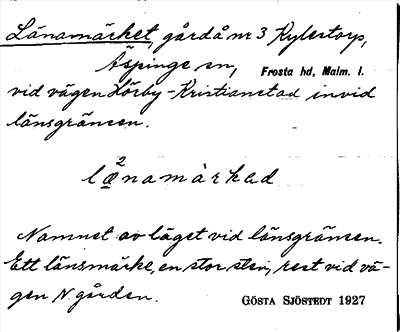 Länamärket, gård å nr 3 Kylestorp,
Äspinge sn, Frosta hd, Malm. l.
vid vägen Hörby-Kristianstad invid
länsgränsen.
2
länamàrkad
Namnet av läget vid länsgränsen.
Ett länsmärke, en stor sten, rest vid vä-
gen N. gården. GÖSTA SJÖSTEDT 1927